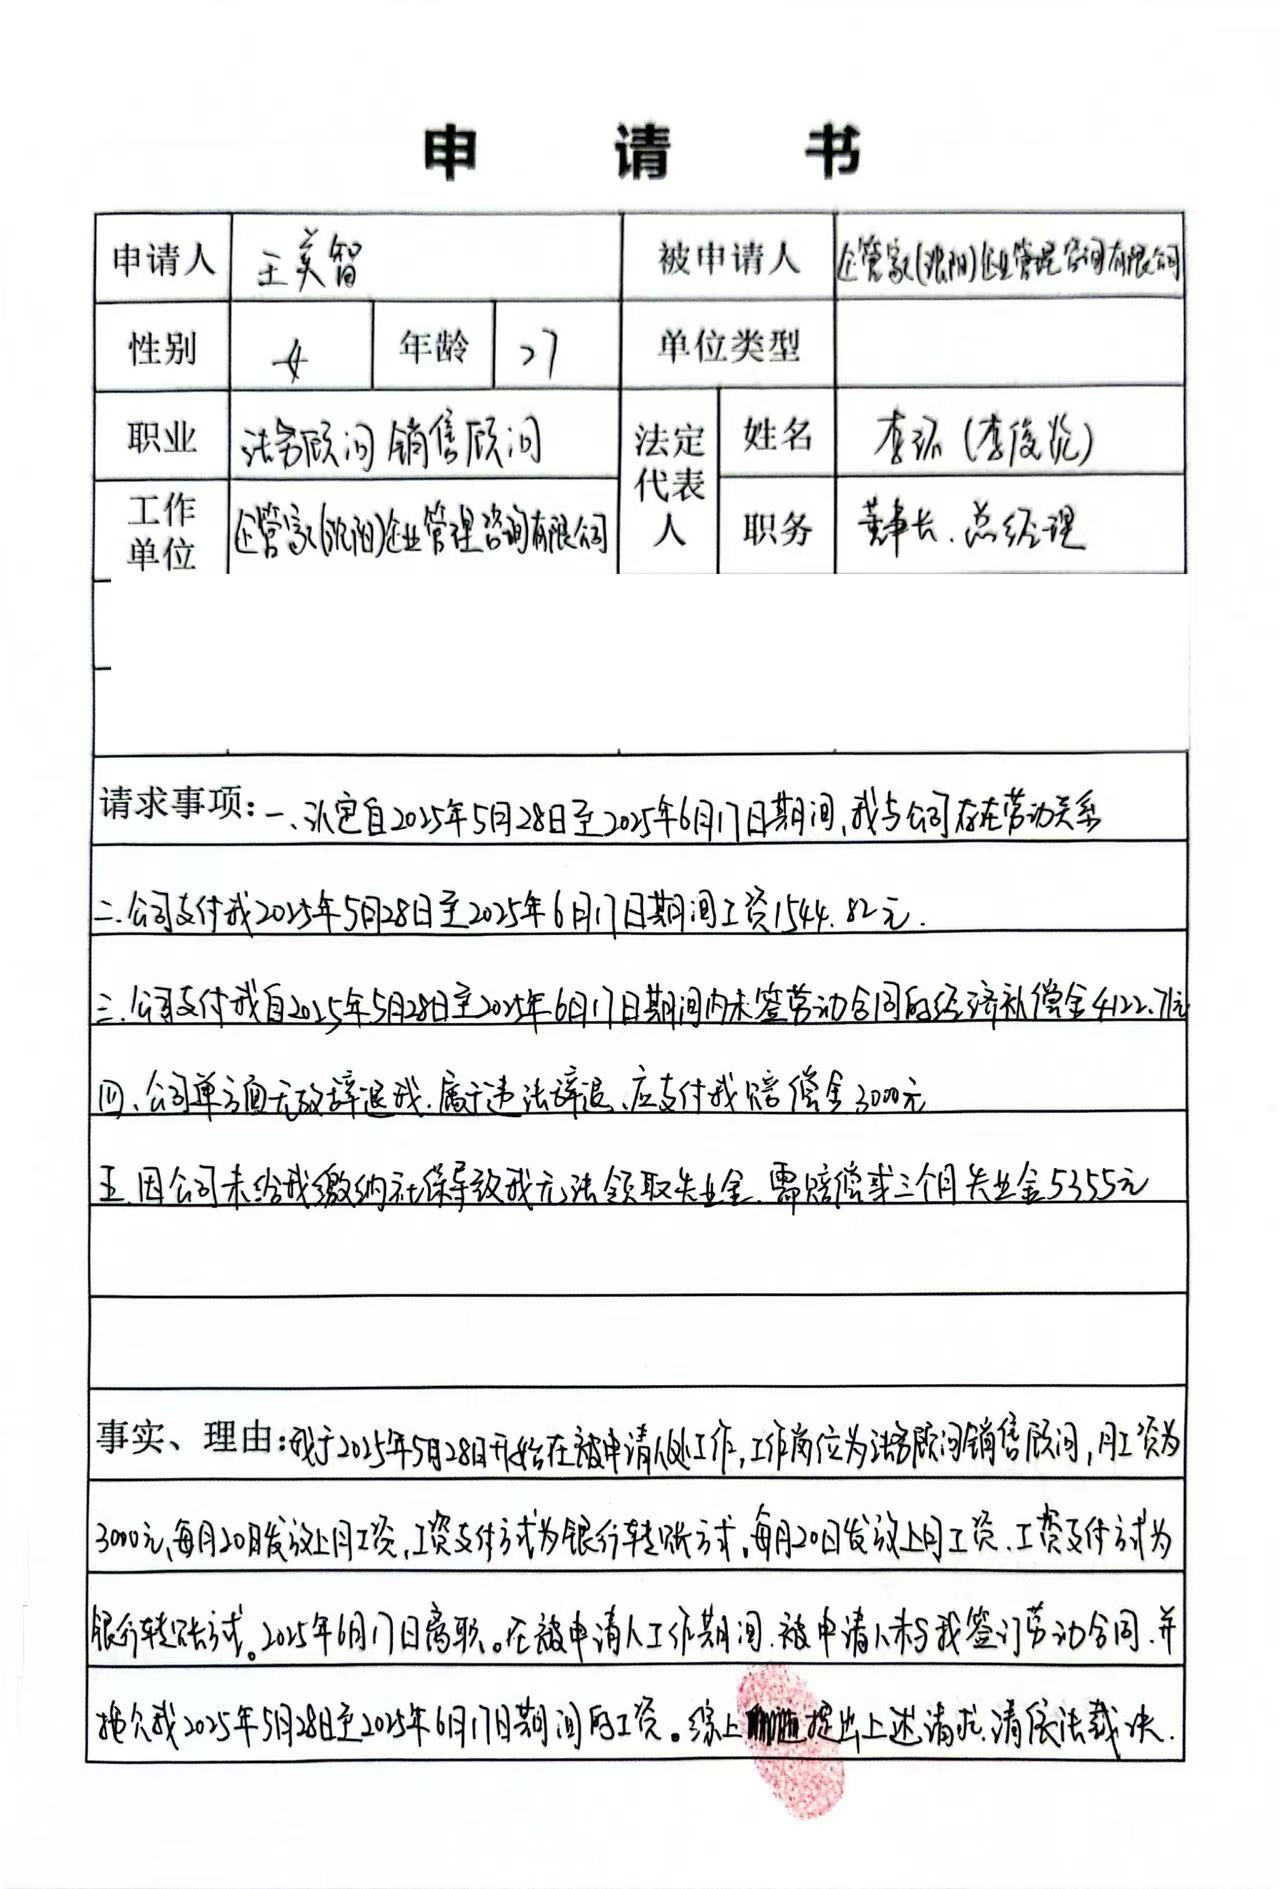 申请书
申请人 王美智 被申请人 企管家(沈阳)企业管理咨询有限公司
性别 女 年龄 27 单位类型
职业 法务顾问 销售顾问 法定代表人 姓名 李琢(李俊)
工作单位 企管家(沈阳)企业管理咨询有限公司 职务 董事长、总经理
请求事项:一、认定自2025年5月28日至2025年6月17日期间,我与公司存在劳动关系
二.公司支付我2025年5月28日至2025年6月17日期间工资1544.82元.
三.公司支付我自2025年5月28日至2025年6月17日期间内未签劳动合同的经济补偿金4122.71元
四、公司单方面无故辞退我.属于违法辞退、应支付我赔偿金3000元
五.因公司未给我缴纳社保导致我无法领取失业金.需赔偿我三个月失业金5355元
事实、理由:我于2025年5月28日开始在被申请人处工作,工作岗位为法务顾问销售顾问,月工资为
3000元,每月20日发放上月工资,工资支付方式为银行转账方式。每月20日发放上月工资.工资支付方式为
银行转账方式。2025年6月17日离职。在被申请人工作期间.被申请人未与我签订劳动合同.并
拖欠我2025年5月28日至2025年6月17日期间的工资。综上提出上述请求.请依法裁决.